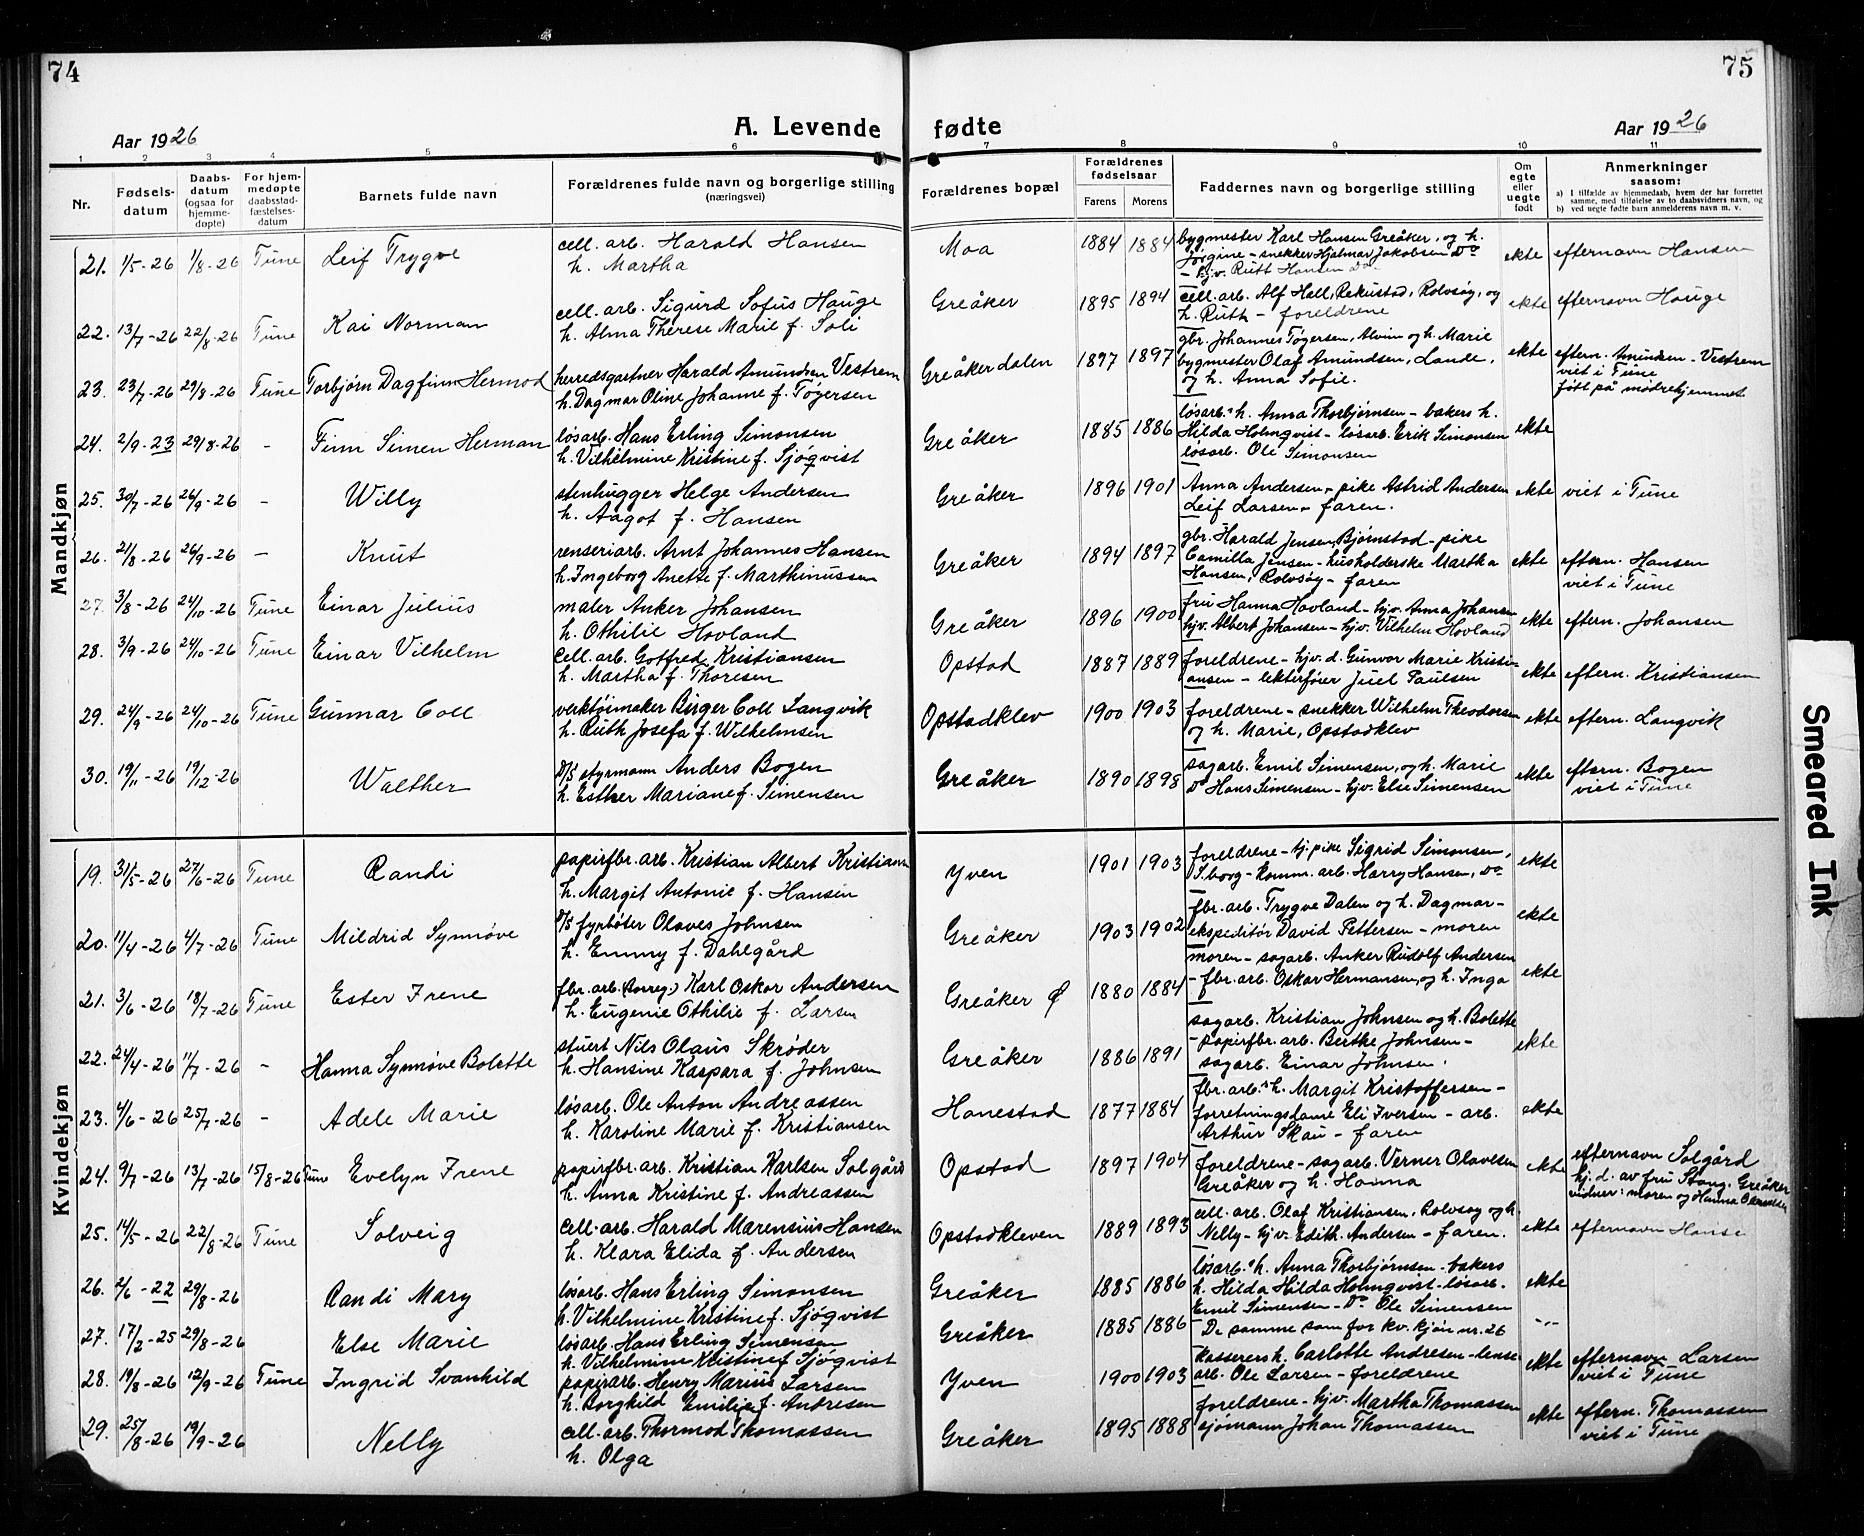 74
75
Aar 1926
A. Levende
fødte
Aar 1926
1 2 3 4 5 6 7 8 9 10 11
Nr.
Fødsels-
datum
Daabs-
datum
(ogsaa for
hjemme-
døpte)
For hjem-
medøpte
daabsstad-
fæstelses-
datum
Barnets fulde navn
Forældrenes fulde navn og borgerlige stilling
(næringsvei)
Forældrenes bopæl
Forældrenes
fødselsaar
Farens Morens
Faddernes navn og borgerlige stilling
Om
egte
eller
uegte
født
Anmerkninger
saasom:
a) I tilfælde av hjemmedaab, hvem der har forrettet
samme, med tilføielse av to daabsvidners navn, og
b) ved uegte fødte barn anmelderens navn m. v.
Mandkjøn
21. 1/5-26 1/8-26 Tune Leif Trygve
cell. arb. Harald Hansen
h. Martha
Moa 1884 1884
bygmester Karl Hansen Greåker, og h.
Jörgine - snekker Hjalmar Jakobsen Do
- hjv. Ruth Hansen Do
ekte efternavn Hansen
22. 13/7-26 22/8-26 Tune Kai Norman
cell. arb. Sigurd Sofus Hauge
h. Alma Therese Marie f. Soli
Greåker 1895 1894
cell. arb. Alf Hall, Rekustad, Rolvsøy, og
h. Ruth - foreldrene
ekte efternavn Hauge
23. 23/7-26 29/8-26 Tune Torbjørn Dagfinn Hermod
herredsgartner Harald Amundsen Vestrem
h. Dagmar Oline Johanne f. Tøgersen
Greåkerdalen 1897 1897
gbr. Johannes Tøgersen, Alvim og h. Marie
bygmester Olaf Amundsen, Lande,
og h. Anna Sofie.
ekte eftern. Amundsen-Vestrem
viet i Tune
født på mødrehjemmet
24. 2/9-23 29/8-26 - Finn Simen Herman
løsarb. Hans Erling Simonsen
h. Vilhelmine Kristine f. Sjøqvist
Greåker 1885 1886
løsarb.'s h. Anna Thorbjørnsen - bakers h.
Hilda Holmqvist - løsarb. Erik Simonsen
løsarb. Ole Simonsen
ekte
25. 30/7-26 26/9-26 - Willy
stenhugger Helge Andersen
h. Aagot f. Hansen
Greåker 1896 1901
Anna Andersen - pike Astrid Andersen
Leif Larsen - faren.
ekte viet i Tune
26. 21/8-26 26/9-26 - Knut
renseriarb. Arnt Johannes Hansen
h. Ingeborg Anette f. Marthinussen
Greåker 1894 1897
gbr. Harald Jensen, Bjørnstad - pike
Camilla Jensen - husholderske Martha
Hansen, Rolvsøy - faren
ekte eftern. Hansen
viet i Tune
27. 3/8-26 24/10-26 Tune Einar Julius
maler Anker Johansen
h. Othilie Hovland
Greåker 1896 1900
fru Hanna Hovland - hjv. Anna Johansen
hjv. Albert Johansen - hjv. Vilhelm Hovland
ekte eftern. Johansen
28. 3/9-26 24/10-26 Tune Einar Vilhelm
Cell. arb. Gotfred Kristiansen
h. Martha f. Thoresen
Opstad 1887 1889
foreldrene - hjv. d. Gunvor Marie Kristi-
ansen - lekterfører Juel Paulsen
ekte eftern. Kristiansen
29. 24/9-26 24/10-26 Tune Gunnar Coll
verktøimaker Birger Coll Langvik
h. Ruth Josefa f. Wilhelmsen
Opstadklev 1900 1903
foreldrene - snekker Wilhelm Theodorsen
og h. Marie, Opstadklev
ekte eftern. Langvik
30. 19/11-26 19/12-26 Walther
D/S styrmann Anders Bogen
h. Esther Mariane f. Simensen
Greåker 1890 1898
sagarb. Emil Simensen, og h. Marie
Do Hans Simensen - hjv. Else Simensen
ekte eftern. Bogen
viet i Tune
Kvindekjøn
19. 31/5-26 27/6-26 Tune Randi
papirfbr. arb. Kristian Albert Kristiansen
h. Margit Antonie f. Hansen
Yven 1901 1903
foreldrene - hj. pike Sigrid Simonsen,
S.borg - komm. arb. Harry Hansen, Do
ekte
20. 11/4-26 4/7-26 Tune Mildrid Synnøve
D/S fyrbøter Olaves Johnsen
h. Emmy f. Dahlgård
Greåker 1903 1902
fbr. arb. Trygve Dalen og h. Dagmar -
ekspeditør David Pettersen - moren
ekte
21. 3/6-26 18/7-26 Tune Ester Irene
fbr. arb. (torreg.) Karl Oskar Andersen
h. Eugenie Othilie f. Larsen
Greåker Ø 1880 1884
moren - sagarb. Anker Rudolf Andersen
- fbr. arb. Oskar Hermansen, og h. Inga
ekte
22. 24/4-26 11/7-26 - Hanna Synnøve Bolette
stuert Nils Olaus Skrøder
h. Hansine Kaspara f. Johnsen
Greåker 1886 1891
sagarb. Kristian Johnsen og h. Bolette
- papirfbr. arb. Berthe Johnsen -
sagarb. Einar Johnsen.
ekte
23. 4/6-26 25/7-26 - Adele Marie
løsarb. Ole Anton Andreassen
h. Karoline Marie f. Kristiansen
Hanestad 1877 1884
fbr. arb.'s h. Margit Kristoffersen -
forretningsdame Eli Iversen - arb.
Arthur Skau - faren
ekte
24. 9/7-26 13/7-26 15/8-26 Tune Evelyn Irene
papirfbr. arb. Kristian Karlsen Solgård
h. Anna Kristine f. Andreassen
Opstad 1897 1904
foreldrene - sagarb. Verner Olavesen
Greåker og h. Hanna
ekte efternavn Solgård
hj. d. av fru Stang, Greåker
vidner: moren og Hanna Olavesen
25. 14/5-26 22/8-26 Tune Solveig
cell. arb. Harald Marensius Hansen
h. Klara Elida f. Andersen
Opstadkleven 1889 1893
cell. arb. Olaf Kristiansen, Rolvsøy og h.
Nelly - hjv. Edith. Andersen - faren.
ekte efternavn Hanse
26. 2/6-22 29/8-26 Randi Mary
løsarb. Hans Erling Simonsen
h. Vilhelmine Kristine f. Sjøqvist
Greåker 1885 1886
løsarb.'s h. Anna Thorbjørnsen - bakers
h. Hilda Hilda Holmqvist - løsarb.
Emil Simensen - Do. Ole Simensen
ekte
27. 17/2-25 29/8-26 Else Marie
løsarb. Hans Erling Simensen
h. Vilhelmine Kristine f. Sjøqvist
Greåker 1885 1886
De samme som for kv. kjøn nr. 26
-"-
28. 19/8-26 12/9-26 Tune Ingrid Svanhild
papirarb. Henry Marius Larsen
h. Borghild Emilie f. Andresen
Yven 1900 1903
kasserers h. Carlotte Andresen - lense
arb. Ole Larsen - foreldrene
ekte efternavn Larsen
viet i Tune
29. 25/8-26 19/9-26 Nelly
cell. arb. Thormod Thomassen
h. Olga
Greåker 1895 1888
foreldrene - hjv. Martha Thomassen
sjømann Johan Thomassen
ekte eftern. Thomassen
viet i Tune
Smeared Ink